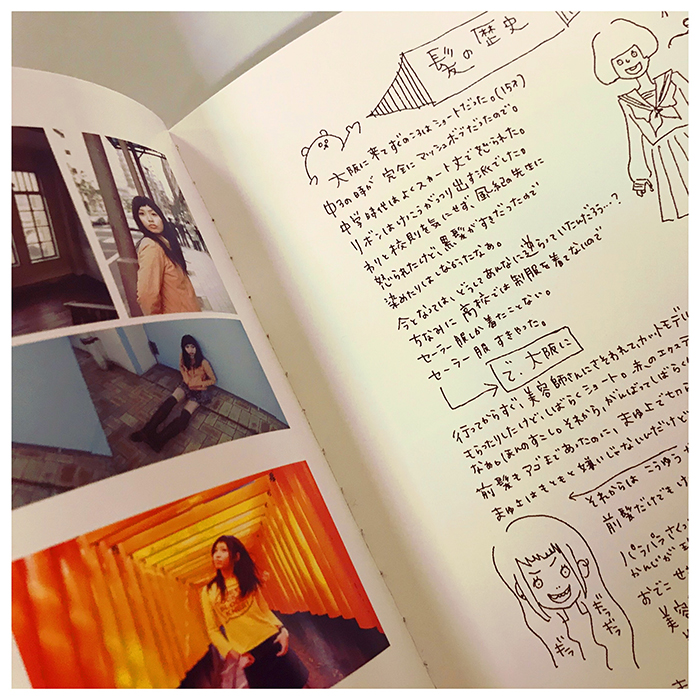 髪の歴史
大阪に来てすぐのころはショートだった。(15才)
中3の時が 完全にマッシュボブだったので。
中学時代はよくスカート丈で怒られた。
リボンはけっこうがっつり出す派でした。
わりと校則を気にせず、風紀の先生に
怒られたけど、黒髪がすきだったので
染めたりはしなかったなあ。
今となっては、どうしてあんなに逆らっていたんだろう…?
ちなみに 高校では 制服を着てないので
セーラー服しか着たことない。
セーラー服 すきやった。
で、大阪に
行ってからすぐ、美容師さんにさそわれて、カットモデル
もらったりしたけど、しばらくショート。赤のエクステ
なあ。ほんのすこし。それから、がんばってしばらく
前髪もアゴまであったのに、まゆ上で切
まゆ上はもともと嫌いじゃないんだけど
それからは こうゆう
前髪だけでも
パラパラ さくっ
かんじが
おでこ せ
美容
ダラダラ
ダラ